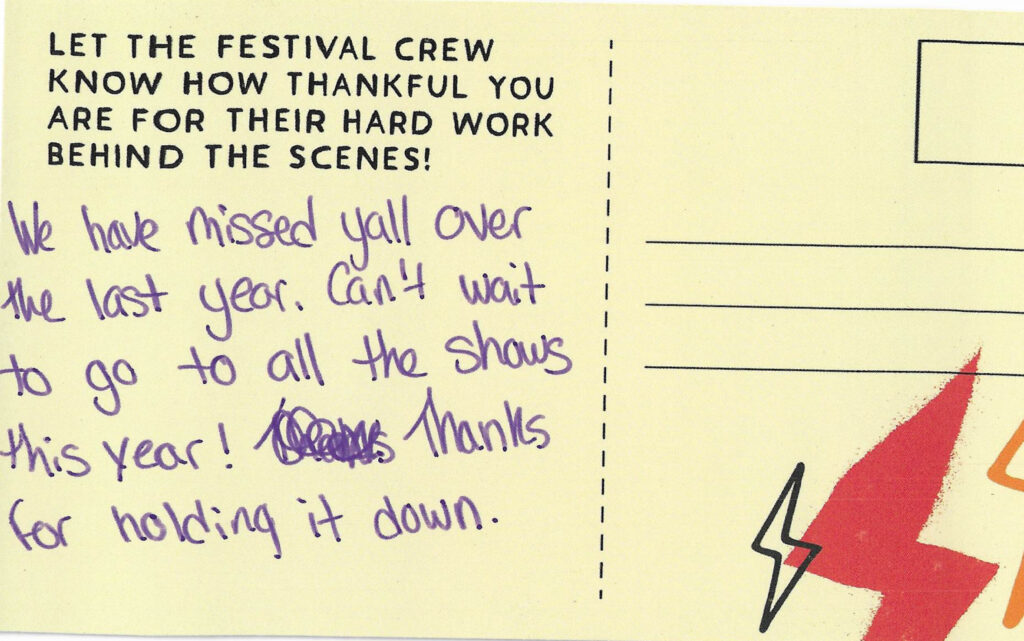 LET THE FESTIVAL CREW
KNOW HOW THANKFUL YOU
ARE FOR THEIR HARD WORK
BEHIND THE SCENES!
We have missed yall over
the last year. Can't wait
to go to all the shows
this year! Thanks
for holding it down.